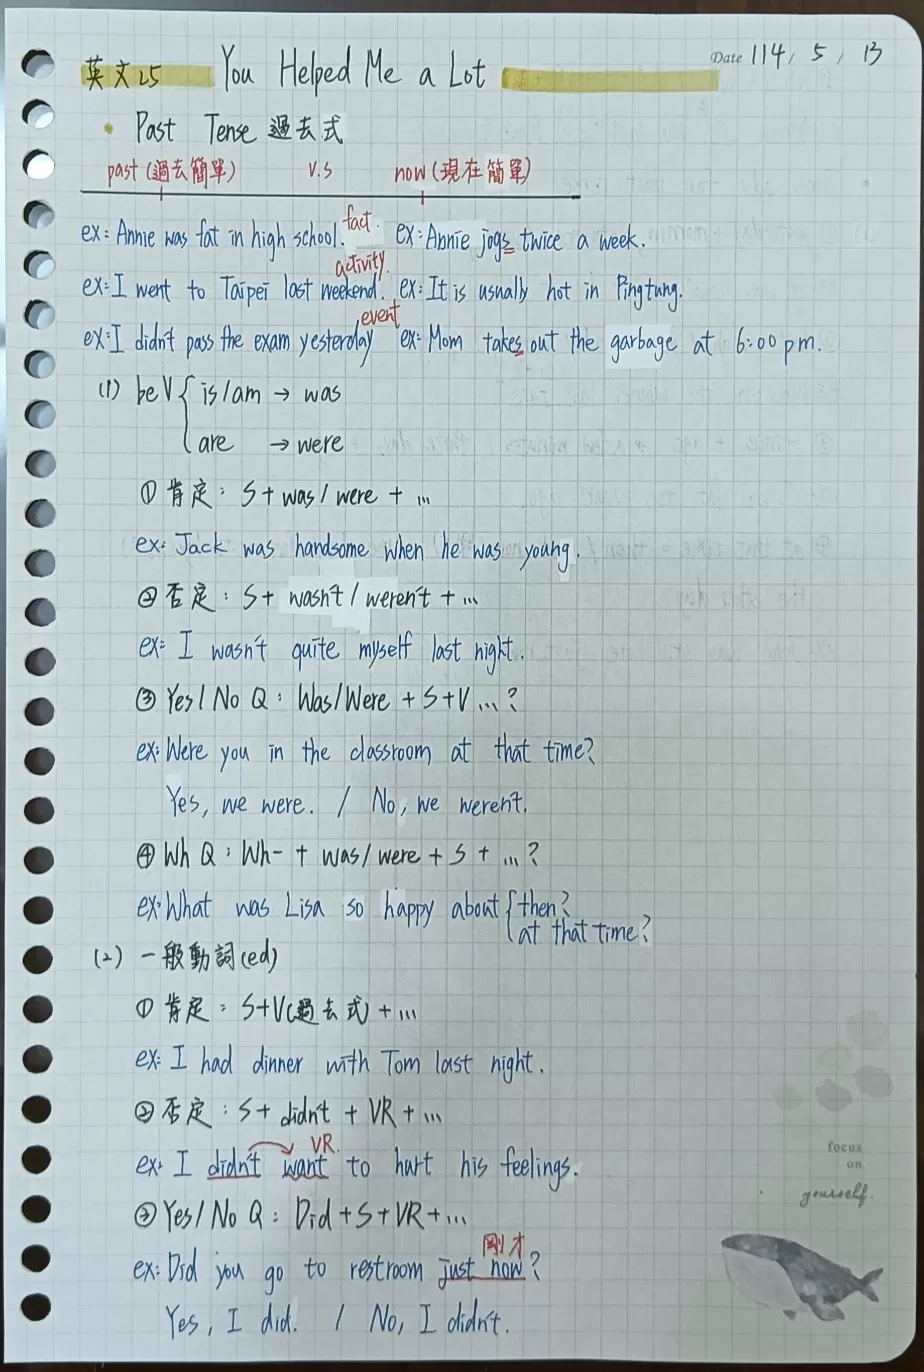 英文L5 You Helped Me a Lot Date 114/ 5 / 13
• Past Tense 過去式
past (過去簡單) v.s now (現在簡單)
ex: Annie was fat in high school. fact. ex: Annie jogs twice a week.
ex: I went to Taipei last weekend. activity. ex: It is usually hot in Pingtung.
ex: I didn't pass the exam yesterday event ex: Mom takes out the garbage at 6:00 pm.
(1) be V { is/am → was
are → were
① 肯定: S + was / were + ...
ex: Jack was handsome when he was young.
② 否定: S + wasn't / weren't + ...
ex: I wasn't quite myself last night.
③ Yes / No Q: Was/Were + S + V ...?
ex: Were you in the classroom at that time?
Yes, we were. / No, we weren't.
④ Wh Q: Wh- + was/were + S + ...?
ex: What was Lisa so happy about { then?
at that time?
(2) 一般動詞(ed)
① 肯定: S+V(過去式) + ...
ex: I had dinner with Tom last night.
② 否定: S + didn't + VR + ...
VR.
ex: I didn't want to hurt his feelings.
③ Yes/ No Q: Did + S + VR + ...
剛才
ex: Did you go to restroom just now?
Yes, I did. / No, I didn't.
focus
on
yourself.